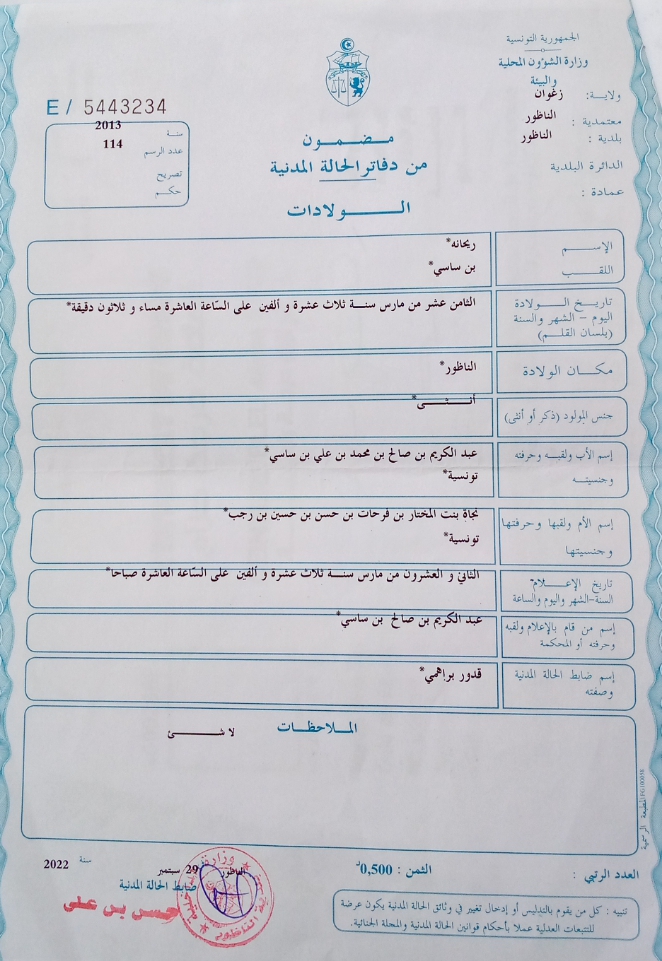 الجمهورية التونسية
وزارة الشؤون المحلية
والبيئة
ولاية : زغوان
معتمدية : الناظور
بلدية : الناظور
الدائرة البلدية
عمادة :
E / 5443234
سنة 2013
عدد الرسم 114
تصريح
حكم
مضمون
من دفاتر الحالة المدنية
الولادات
الإسم ريحانه*
اللقب بن ساسي*
تاريخ الولادة
اليوم - الشهر والسنة
(بلسان القلم)
الثامن عشر من مارس سنة ثلاث عشرة و ألفين على السّاعة العاشرة مساء و ثلاثون دقيقة*
مكان الولادة الناظور*
جنس المولود (ذكر أو أنثى) أنثى*
إسم الأب ولقبه وحرفته عبد الكريم بن صالح بن محمد بن علي بن ساسي*
وجنسيته تونسية*
إسم الأم ولقبها وحرفتها نجاة بنت المختار بن فرحات بن حسن بن حسين بن رجب*
وجنسيتها تونسية*
تاريخ الإعلام
السنة-الشهر واليوم والساعة
الثاني و العشرون من مارس سنة ثلاث عشرة و ألفين على السّاعة العاشرة صباحا*
إسم من قام بالإعلام ولقبه
وحرفته أو المحكمة
عبد الكريم بن صالح بن ساسي*
إسم ضابط الحالة المدنية
وصفته
قدور براهمي*
الملاحظات
لا شئ
العدد الرتبي :
الثمن : 0,500د
الناظور 29 سبتمبر سنة 2022
ضابط الحالة المدنية
حسن بن علي
تنبيه : كل من يقوم بالتدليس أو إدخال تغيير في وثائق الحالة المدنية يكون عرضة
للتتبعات العدلية عملا بأحكام قوانين الحالة المدنية والمجلة الجنائية.
المطبعة الرسمية